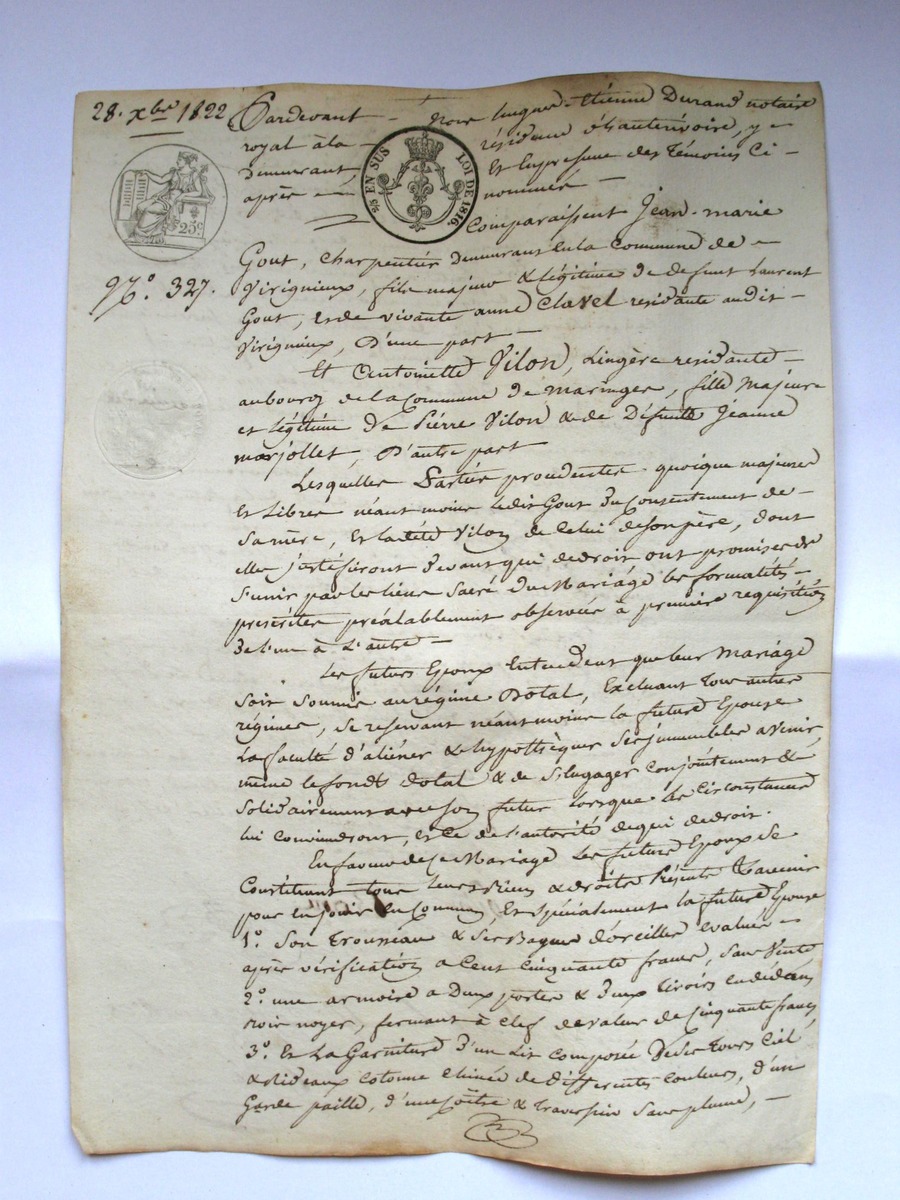 28. xbre 1822
Pardevant Nous hugues-Etienne Durand notaire
royal à la résidence d'hauterivoire, y
demeurant Et En presence des Témoins Ci
après nommés
EN SUS LOI DE 1816.
25c
Comparaissent Jean-marie
Gout, Charpentier demeurant En la Commune de
No. 327.
Virignieux, fils majeur & légitime de defunt Laurent
Gout, et de vivante anne Clavel residante audit
Virignieux, D'une part
Et Antoinette Vilon, Lingère residante
au bourg de la Commune de maringes, fille Majeure
et légitime de Pierre Vilon & de Défunte Jeanne
marjollet, D'autre part
Lesquelles Parties procedentes quoique majeures
Et Libres néantmoins ledit Gout du Consentement de
Sa mère, Et la dté Vilon de Celui de son père, dont
elles justifiront devant qui de droit ont promises de
s'unir par les liens Sacré du Mariage les formalités
prescrites préalablement observées à première requisition
de l'un à L'autre
Les futurs Epoux Entendent que leur Mariage
soit soumis au régime Dotal, Excluant Tous autres
régimes, se reservant néantmoins la future Epouse
La faculté d'aliéner & hypothèquer Ses immeubles a venir,
même le fonds dotal & de S'engager Conjointement &
Solidairement avec son futur lorsque les Circonstances
lui Conviendront, et Ce de l'autorité de qui de droit.
En faveur de Ce Mariage Les futurs Epoux Se
Constituent tous leurs Biens & droits Présents & avenir
pour En jouir En Commun Et Spécialement la future Epouse
1o. Son Trousseau & Ses Bagues d'oreilles evalués
après vérification a Cent Cinquante francs, Sans Vente
2o. une armoire a Deux portes & Deux Tiroirs
noyer, fermant à Clef de valeur de Cinquante francs
3o. Et La Garniture d'un Lit Composée De Ses Tours Ciel
& Rideaux Cotonne Chinée de Différentes Couleurs, d'un
Garde paille, d'une Coître & Traversin Sans plume,